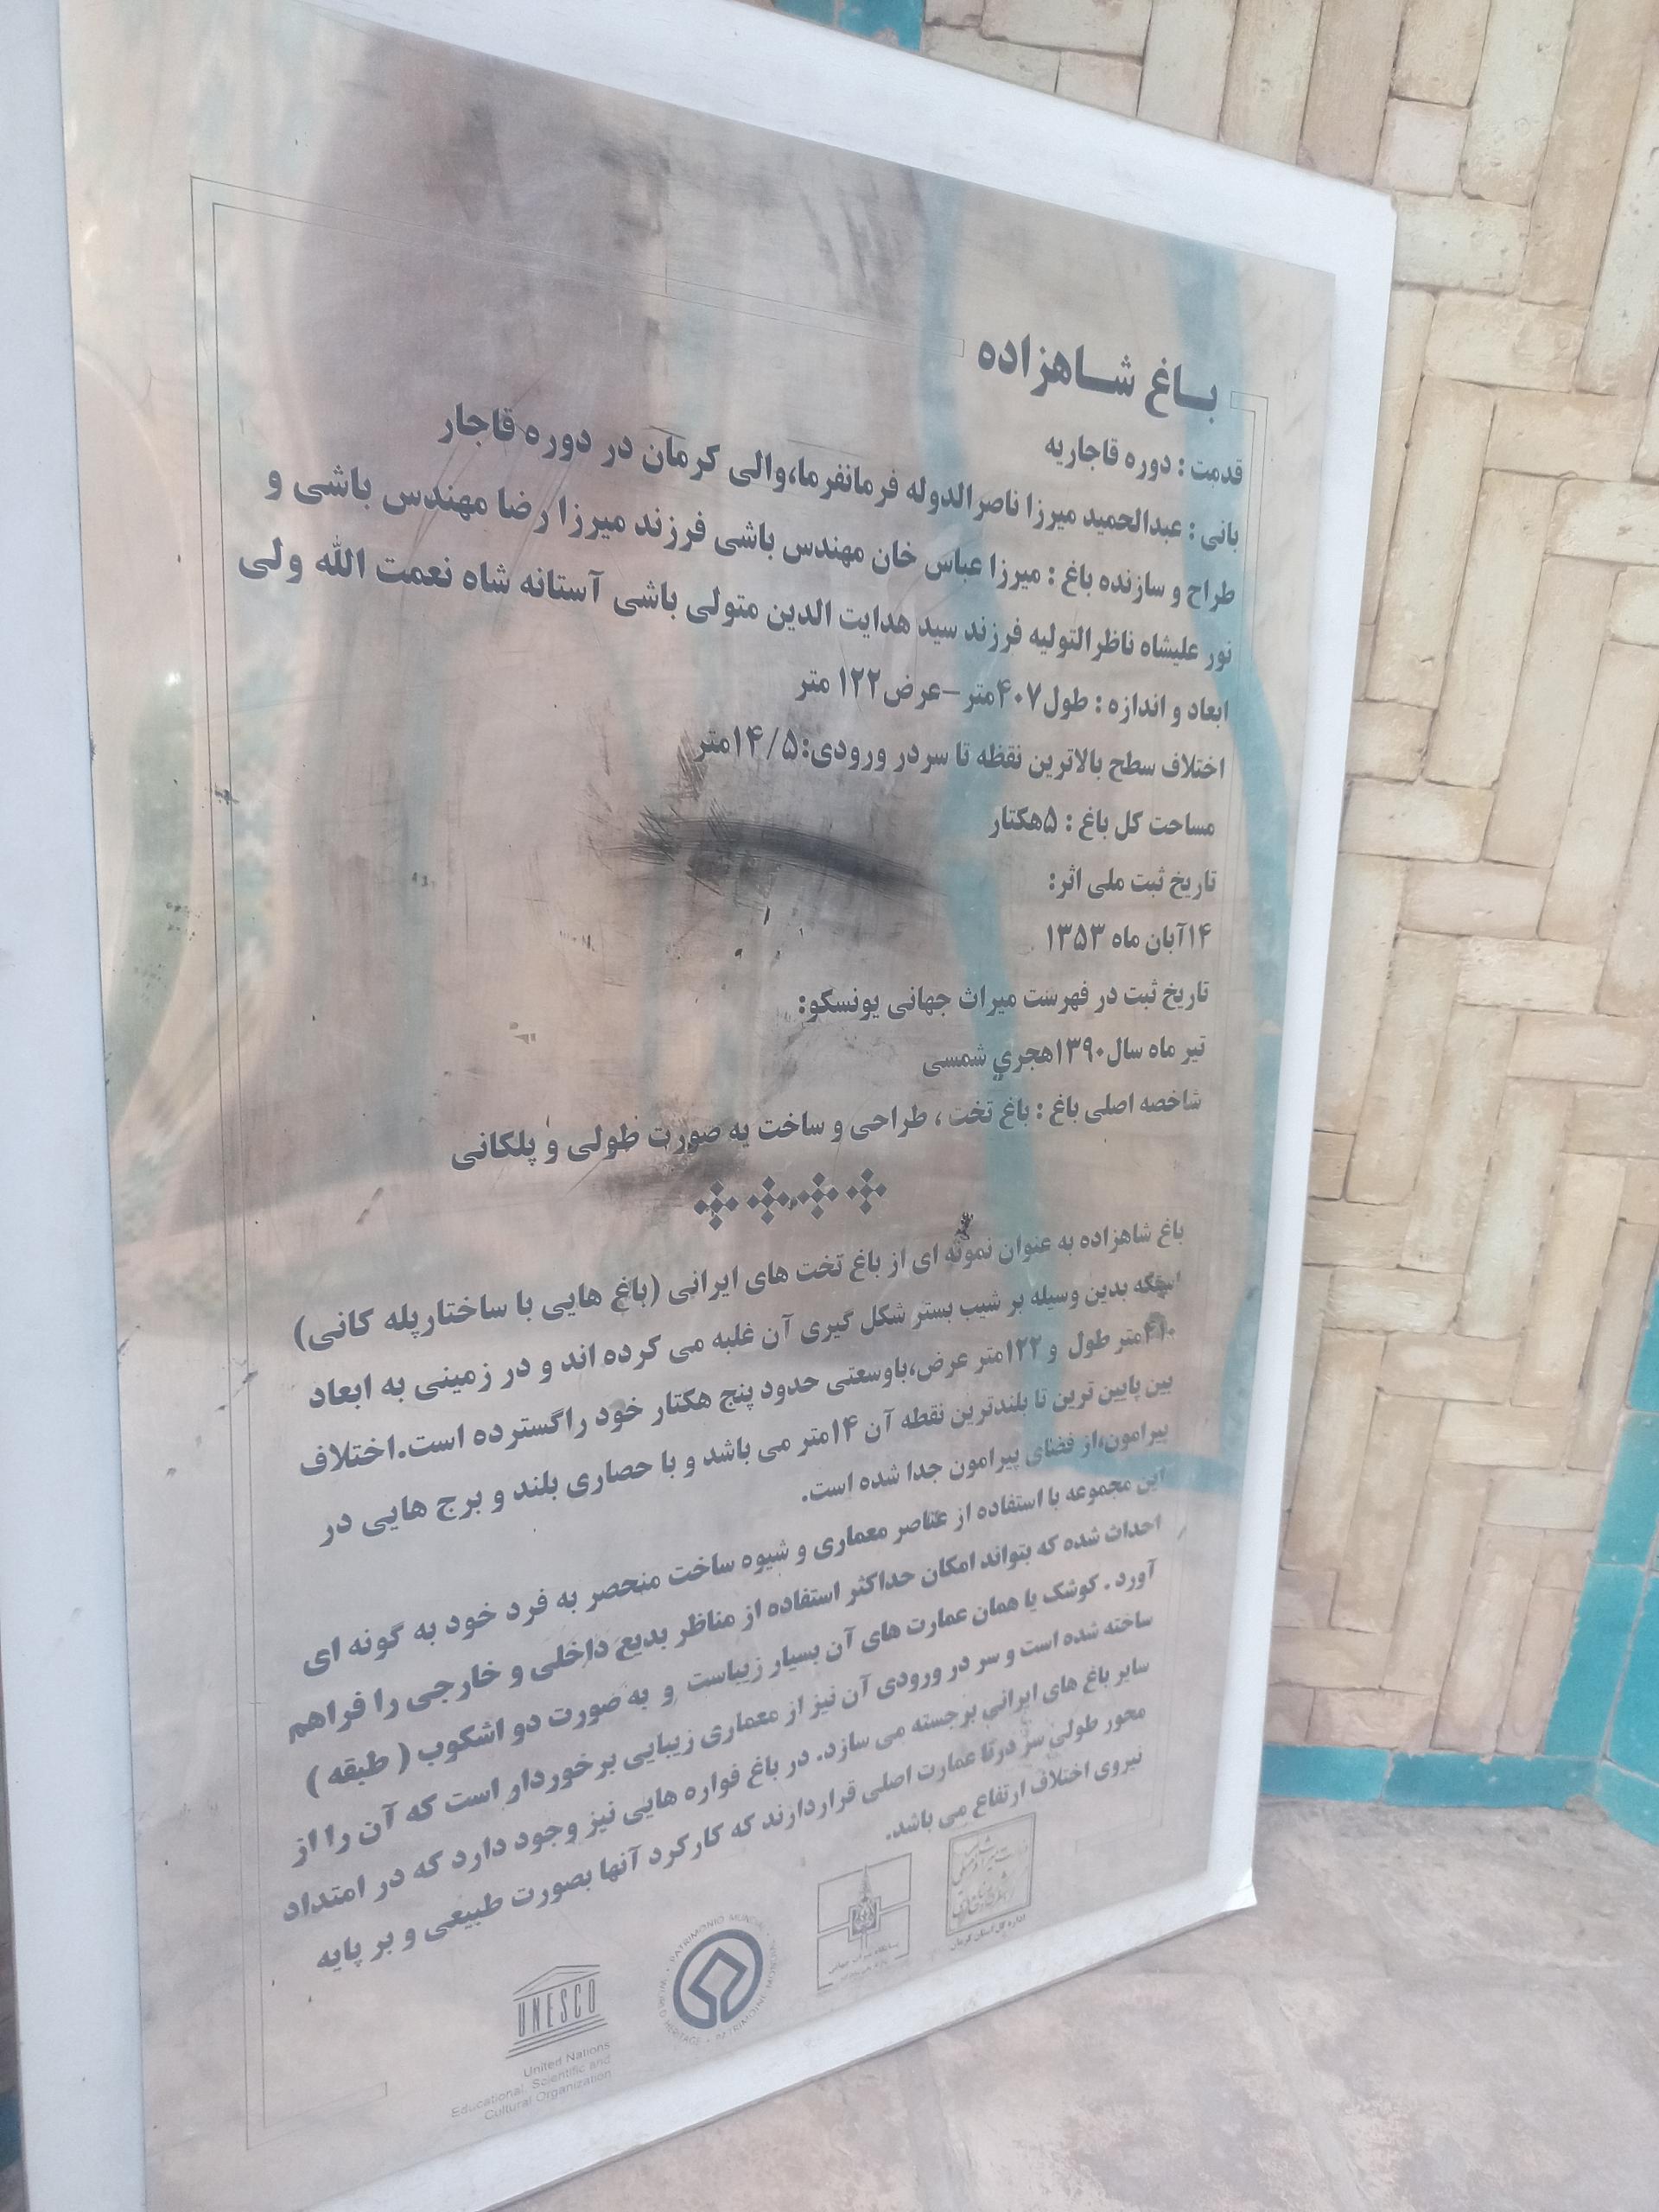 باغ شاهزاده
قدمت : دوره قاجاریه
بانی : عبدالحمید میرزا ناصرالدوله فرمانفرما،والی کرمان در دوره قاجار
طراح و سازنده باغ : میرزا عباس خان مهندس باشی فرزند میرزا رضا مهندس باشی و
نور علیشاه ناظرالتولیه فرزند سید هدایت الدین متولی باشی آستانه شاه نعمت الله ولی
ابعاد و اندازه : طول۴۰۷متر-عرض۱۲۲ متر
اختلاف سطح بالاترین نقطه تا سردر ورودی:۱۴/۵متر
مساحت کل باغ : ۵هکتار
تاریخ ثبت ملی اثر:
۱۴آبان ماه ۱۳۵۳
تاریخ ثبت در فهرست میراث جهانی یونسکو:
تیر ماه سال۱۳۹۰هجري شمسی
شاخصه اصلی باغ : باغ تخت ، طراحی و ساخت به صورت طولی و پلکانی
باغ شاهزاده به عنوان نمونه ای از باغ تخت های ایرانی (باغ هایی با ساختارپله کانی)
بدین وسیله بر شیب بستر شکل گیری آن غلبه می کرده اند و در زمینی به ابعاد
۴۱۰متر طول و۱۲۲متر عرض،باوسعتی حدود پنج هکتار خود راگسترده است.اختلاف
بین پایین ترین تا بلندترین نقطه آن ۱۴متر می باشد و با حصاری بلند و برج هایی در
پیرامون،از فضای پیرامون جدا شده است.
این مجموعه با استفاده از عناصر معماری و شیوه ساخت منحصر به فرد خود به گونه ای
احداث شده که بتواند امکان حداکثر استفاده از مناظر بدیع داخلی و خارجی را فراهم
آورد . کوشک یا همان عمارت های آن بسیار زیباست و به صورت دو اشکوب ( طبقه )
ساخته شده است و سر در ورودی آن نیز از معماری زیبایی برخوردار است که آن را از
سایر باغ های ایرانی برجسته می سازد. در باغ فواره هایی نیز وجود دارد که در امتداد
محور طولی سر درتا عمارت اصلی قراردارند که کارکرد آنها بصورت طبیعی و بر پایه
نیروی اختلاف ارتفاع می باشد.
اداره کل استان کرمان
PATRIMONIO MUNDIAL • WORLD HERITAGE • PATRIMOINE MONDIAL
UNESCO
United Nations
Educational, Scientific and
Cultural Organization